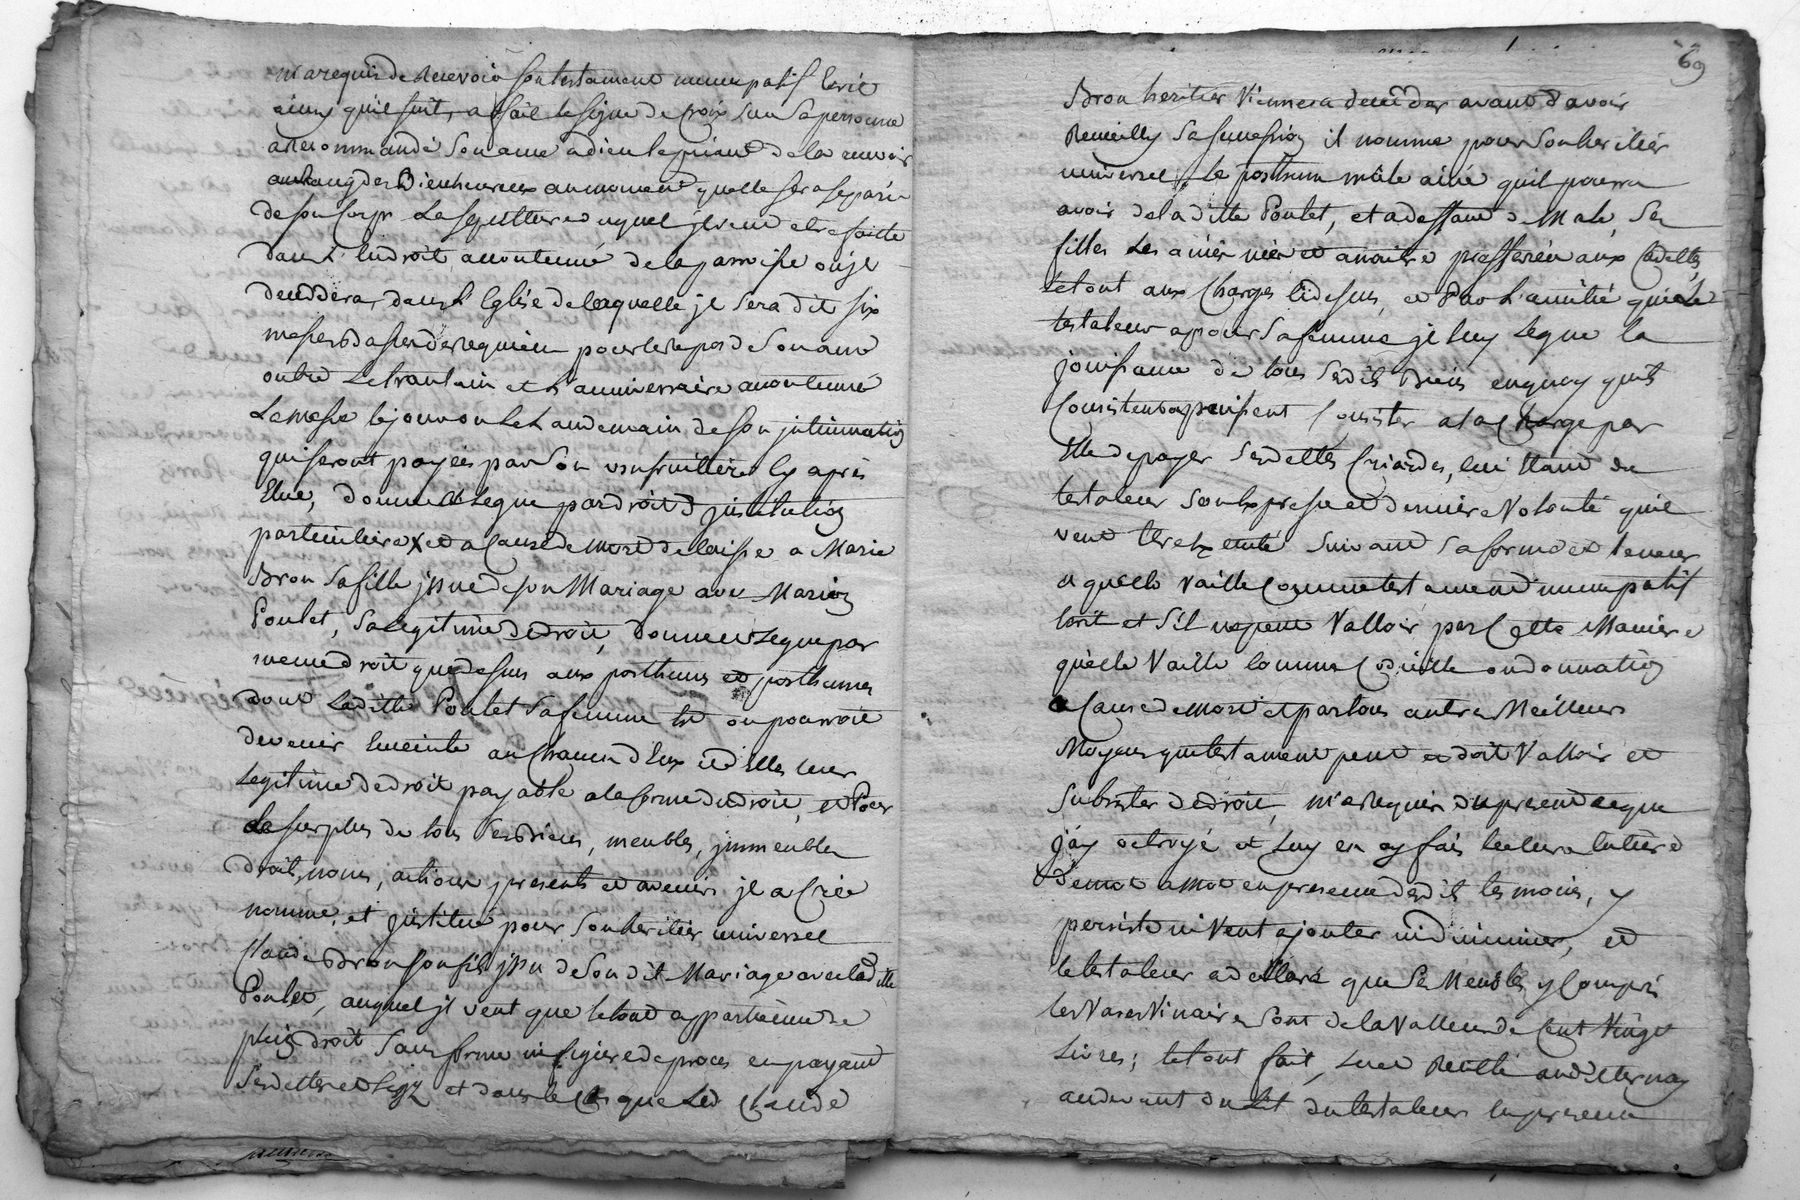 m'a requis de recevoir son testament nuncupatif écrit
ainsy qu'il suit, a fait le signe de croix sur sa personne
a recommandé son ame a dieu le priant de la recevoir
au rang des Bienheureux au moment quelle sera separée
de son Corps La sepulture duquel jl veut etre faitte
dans L'endroit accoutumé de la parroisse ou jl
deceddera, dans L'Eglise de laquelle jl sera dit six
messes de requiem pour le repos de son ame
outre Le trantain et L'anniverssaire accoutumé
La messe le jour ou Le Landemain de son jnhumation
qui seront payées par son usufruitiere Cy après
Elue, donne et Legue par droit d'jnstitution
particuliere et a Cause de mort delaisse a Marie
Bron sa fille jssue de son Mariage avec Marie
Poulet, sa Legitime de droit, donne et Legue par
meme droit que dessus aux posthumes et posthumes
dont Laditte Poulet sa femme est ou pourroit
devenir Enceinte a un Chacun d'Eux et d'Elles leur
Legitime de droit payable a la forme du droit, et Pour
Le surplus de tous ses Biens, meubles, jmmeubles
droits, noms, actions presents et avenir jl a Créé
nommé, et jnstitué pour son heritier universel
Claude Bron son fils jssu de son dit Mariage avec laditte
Poulet, auquel jl veut que le tout appartienne de
plein droit sans forme ni figure de proces en payant
ses dettes et Legs et dans le Cas que Led Claude
69
Bron heritier Viennera deceder avant d'avoir
Recueilly sa succession il nomme pour son heritier
universel, Le posthume mâle ainé qu'il pourra
avoir de la ditte Poulet, et a deffaut de Male, Ses
filles Les ainées nées et a naitre preferées aux Cadettes,
le tout aux Charges Cidessus, et Par L'amitié que Le
testateur a pour sa femme jl luy Legue la
jouissance de tous sesdits Biens en quoy qu'ils
Consistent ou puissent Consister a la Charge par
Elle de payer ses dettes Criardes, Cui Etant du
testateur son Expresse et derniere Volonté qu'il
veut Etre Executé suivant sa forme et teneur
et quelle vaille Comme testament nuncupatif
Ecrit et s'il ne peut Valloir par Cette Maniere
quelle Vaille Comme Codicille ou donnation
a Cause de mort et par tous autres Meilleurs
Moyens que testament peut et doit Valloir et
subsister de droit, m'a Requis du present acte que
j'ay octroyé et luy en ay fais lecture Entiere
de mot a mot en presence desdits temoins, y
persiste ni Veut ajouter ni diminuer, et
le testateur a déclaré que Se Meubles y Compris
les Vases Vinaires sont de la Valleur de Cent Vingt
Livres; le tout fait, Lue Recitté aud Eternay
audevant du Lit du testateur En presence